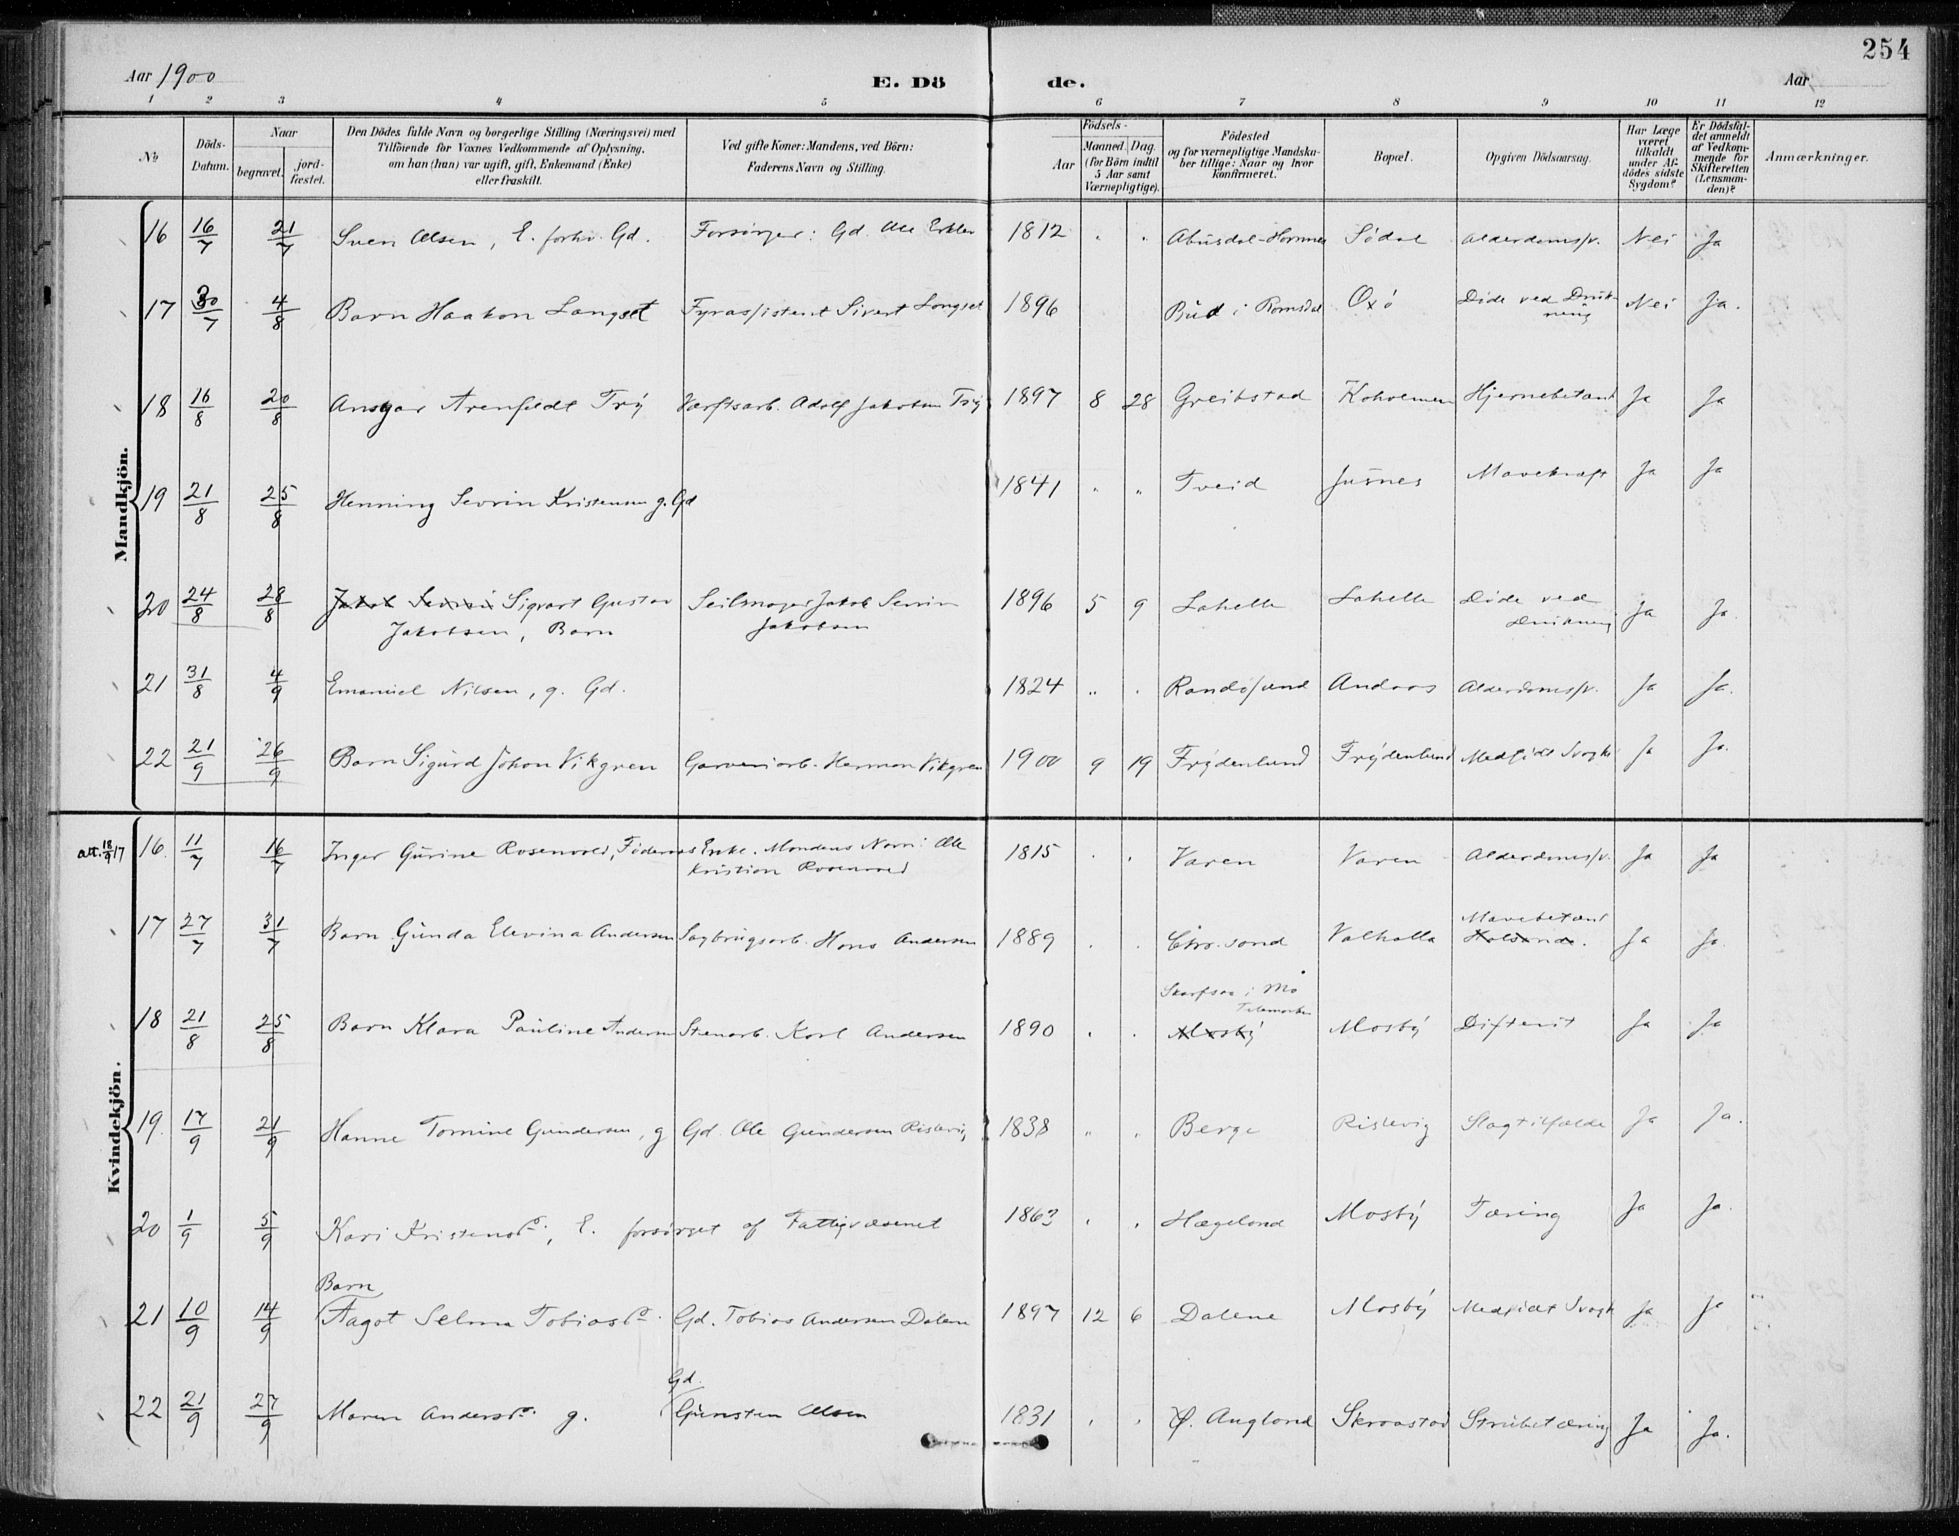 254
Aar 1900 E. Dö de. Aar
1 2 3 4 5 6 7 8 9 10 11 12
№ Döds-Datum. Naar begravet. jord-fæstet. Den Dödes fulde Navn og borgerlige Stilling (Næringsvei) med Tilföiende for Voxnes Vedkommende af Oplysning, om han (hun) var ugift, gift, Enkemand (Enke) eller fraskilt. Ved gifte Koner: Mandens, ved Börn: Faderens Navn og Stilling. Födsels- Aar Maaned. Dag. (for Börn indtil 5 Aar samt Værnepligtige). Födested og for værnepligtige Mandskaber tillige: Naar og hvor konfirmeret. Bopæl. Opgiven Dödsaarsag. Har Læge været tilkaldt under Afdödes sidste Sygdom? Er Dödsfaldet anmeldt af Vedkommende for Skifteretten (Lensmanden)? Anmærkninger.
Mandkjön.
16 16/7 21/7 Sven Olsen, E. forhv. Gd. Forsörger: Gd. Ole 1812 " " Abusdal-Hornnes Södal Alderdomssv. Nei Ja
17 30/7 4/8 Barn Haakon Langset Fyrassistent Sivert Langset 1896 Bud i Romsdal Oxö Döde ved Drukning Nei Ja.
18 16/8 20/8 Ansgar Arenfeldt Trÿ Værftsarb. Adolf Jakobsen Trÿ 1897 8 28 Greibstad Kokolmen Hjernebetænd Ja Ja
19 21/8 25/8 Henning Sevrin Kristensen g. Gd 1841 " " Tveid Jusnes Mavekræft Ja Ja
20 24/8 28/8 Jakob Sevrin Sigvart Gustav Seilmager Jakob Sevrin 1896 5 9 Lahelle Lahelle Döde ved Ja Ja.
Jakobsen, Barn Jakobsen Drukning
21 31/8 4/9 Emanuel Nilsen, g. Gd. 1824 " " Randösund Andaas Alderdomssv. Ja Ja.
22 21/9 26/9 Barn Sigurd Johan Vikgren Garveriarb. Herman Vikgren 1900 9 19 Frÿdenlund Frÿdenlund Medfödt Svagh Ja Ja.
Kvindekjön.
att. 18/9 17 16 11/7 16/7 Inger Gurine Rosenvold, Föderaads Enke. Mandens Navn: Ole 1815 " " Varen Varen Alderdomssv. Ja Ja
Kristian Rosenvold
17 27/7 31/7 Barn Gunda Elevina Andersen Sagbrugsarb. Hans Andersen 1889 . . Chr.sand Valhalla Mavebetænd Ja Ja.
18 21/8 25/8 Barn Klara Pauline Andersen Stenarb. Karl Andersen 1890 . . Skafsaa i Mo Telemarken Mosbÿ Mosbÿ Difterit Ja Ja
19. 17/9 21/9 Hanne Tomine Gundersen, g Gd. Ole Gundersen Rislevig 1838 " . Berge Rislevig Slagtilfælde Ja Ja.
20 1/9 5/9 Kari Kristensd., E. forsörget af Fattigvæsenet 1863 . . Hægeland Mosbÿ Tæring Ja Ja.
Barn
21 10/9 14/9 Aagot Selma Tobiasd. Gd. Tobias Andersen Dalene 1897 12 6 Dalene Mosbÿ Medfödt Svagh Ja Ja
Gd.
22 21/9 27/9 Maren Andersd. g. Gunsten Olsen 1831 . . Ö. Augland Skraastad Strubetæring Ja Ja.